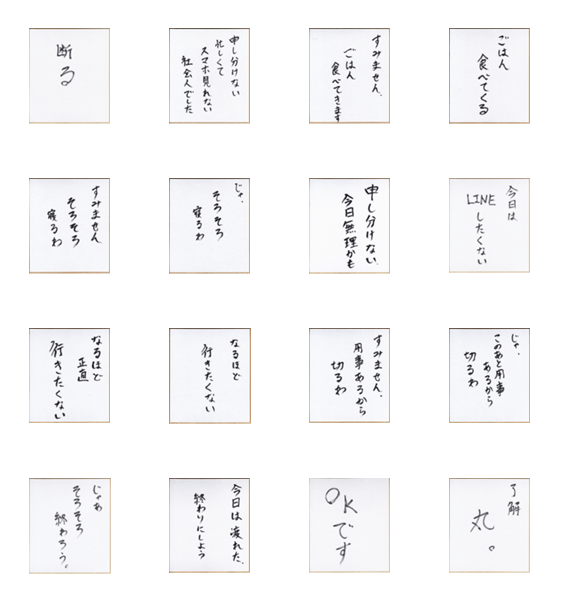 断る
申し分けない
忙しくて
スマホ見れない
社会人でした
すみません、
ごはん
食べてきます
ごはん
食べてくる
すみません
そろそろ
寝るわ
じゃ、
そろそろ
寝るわ
申し分けない、
今日無理かも
今日は
LINE
したくない
なるほど
正直
行きたくない
なるほど
行きたくない
すみません、
用事あるから
切るわ
じゃ、
このあと用事
あるから
切るわ
じゃあ
そろそろ
終わろう。
今日は疲れた、
終わりにしよう
OKです
了解
丸。